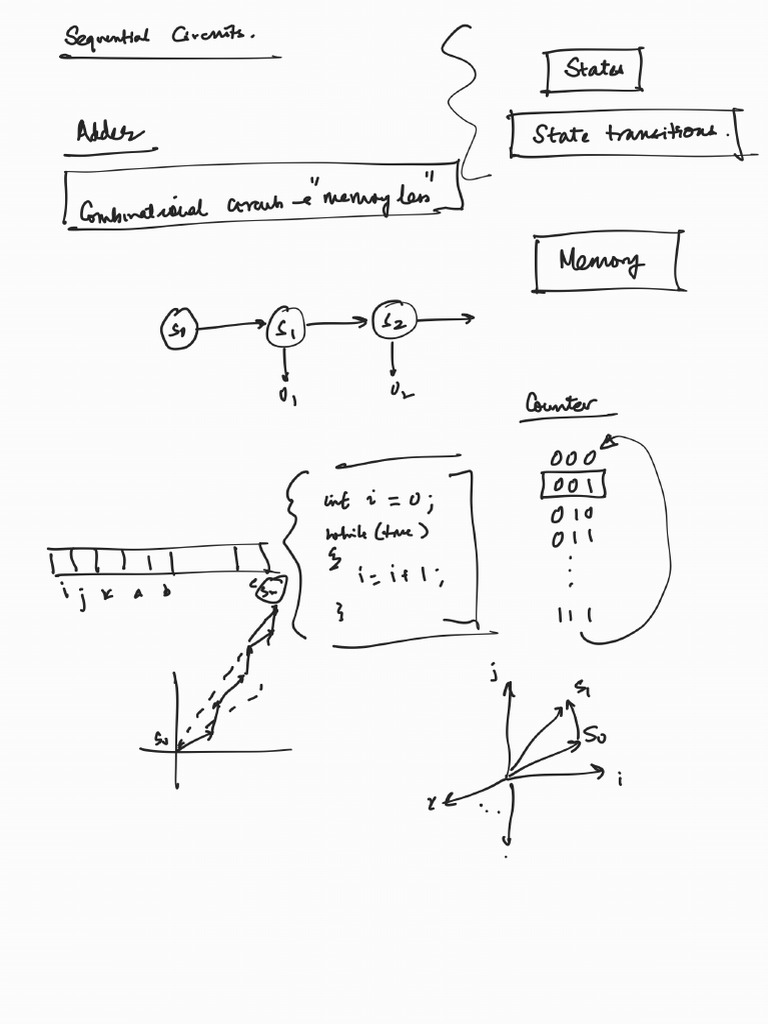 Sequential Circuits.
States
State transitions.
Adder
Combinational circuits → "memory less"
Memory
S0 S1 S2
O1 O2
Counter
000
001
010
011
⋮
111
int i = 0;
while (true)
{
i = i + 1;
}
i j k a b c
Sn
S0
j
S1
S0
i
...